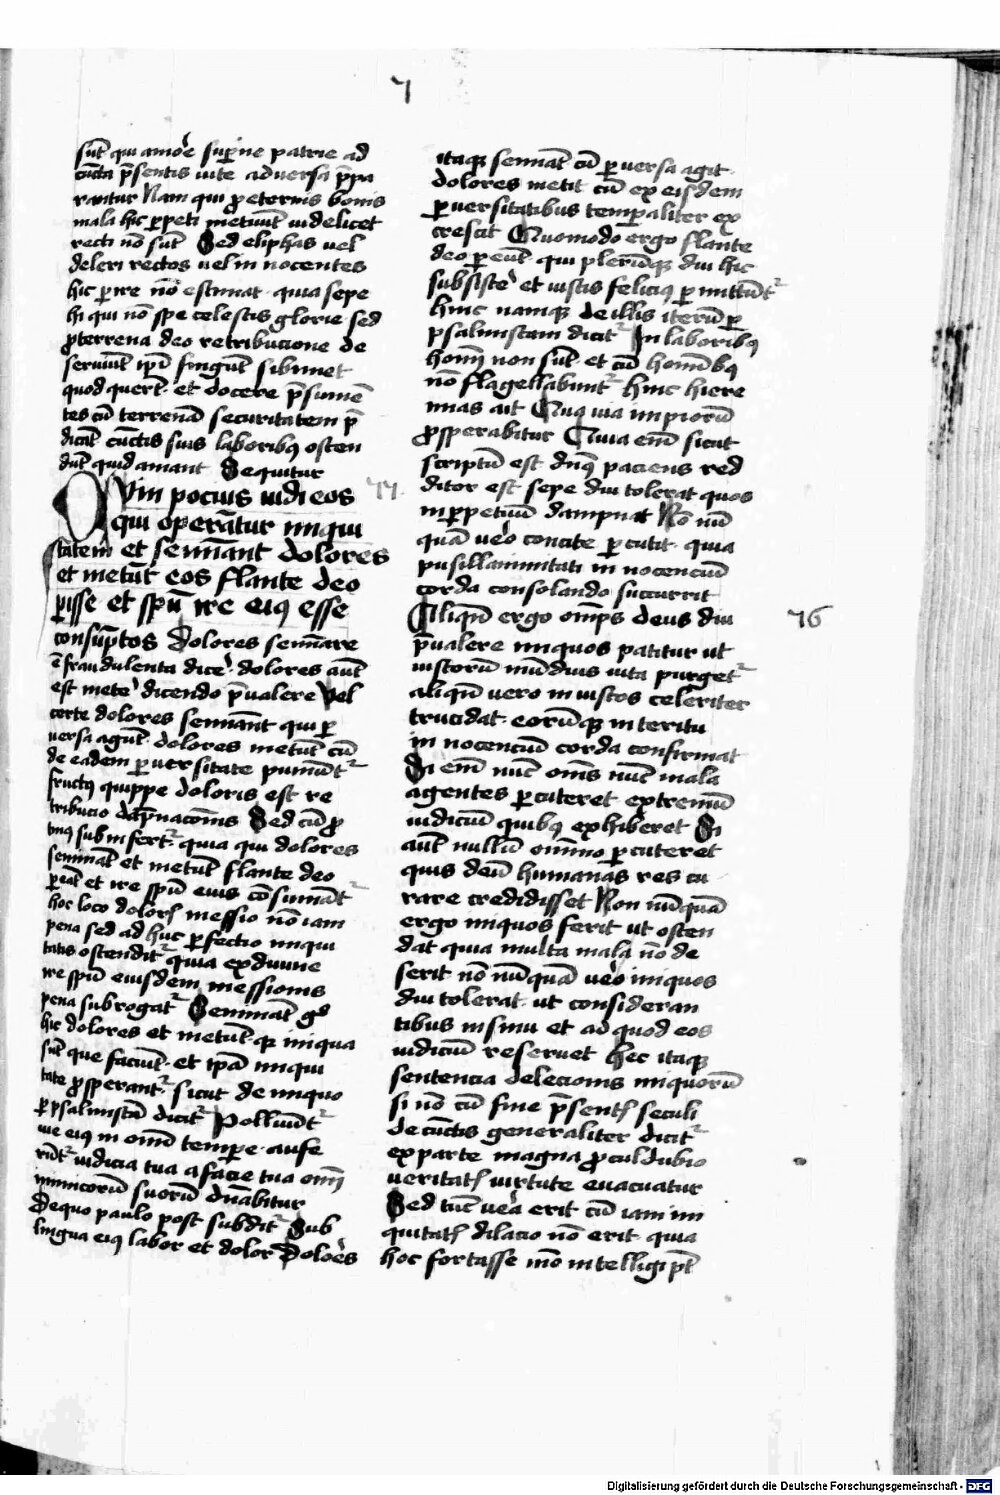 7
sūt qui amoꝛe suꝑne patrie ad
cūcta p̄sentis uite aduersa p̄pa
rantur Nam qui ꝓ eternis bonis
mala hic ꝑpeti metuūt uidelicet
recti nō sūt Sed eliphas uel
deleri rectos uel in nocentes
hic ꝑire nō estimat · quia sepe
hi qui nō spe celestis glorie · sed
ꝓ terrena deo retribucione de
seruiūt ip̄i fingūt sibimet
quod querūt · et docere p̄sumē
tes cū terrenā securitatem p̄
dicāt cūctis suis laboribꝰ osten
dūt quid amant Sequitur
Qvin pocius uidi eos 77
qui operātur iniqui
tatem et semināt dolores
et metūt eos flante deo
ꝑisse et spū ire eiꝰ esse
consūptos Dolores semīare
ē fraudulenta dicēˀ · dolores autē
est meteˀ dicendo p̄ualere Vel
certe dolores semināt qui ꝑ
uersa agūt · dolores metūt cū
de eadem ꝑuersitate puniūtˀ
fructꝰ quippe doloris est re
tribucio dāpnacōnis Sed cū ꝓ
tinꝰ sub infertˀ · quia qui dolores
semināt et metūt flante deo
ꝑeāt et ire spū eius cōsumātˀ
hoc loco dolorꝭ messio nō iam
pena sed ad huc ꝑfectio iniqui
tatis ostenditˀ quia ex diuine
ire spū eiusdem messionis
pena subrogatˀ Semināt gͦ
hic dolores et metūt · qꝫ iniqua
sūt que faciūt · et ip̄a iniqui
tate ꝓsperantˀ · sicut de iniquo
ꝑ psalmistā dicitˀ Polluūtˀ
uie eiꝰ in omī tempe · aufe
rūtˀ iudicia tua a facie tua omī
inimicorū suorū dn̄abitur
De quo paulo post subditˀ Sub
lingua eiꝰ labor et dolor Doloēs
itaqꝫ semināt cū ꝑuersa agit ·
dolores metit cū ex eisdem
ꝑuersitatibus temꝑaliter ex
crescit Quomodo ergo flante
deo ꝑeūt · qui plerūqꝫ diu hic
subsisteˀ et iustis feliciꝰ ꝑmittūtˀ
hinc namqꝫ de illis iterū ꝑ
psalmistam dicitˀ In laboribꝰ
homī non sūt · et cū homībꝰ
nō flagellabūtˀ hinc hiere
mias ait Quq uia impiorū
ꝓsperabitur Quia enī sicut
scriptū est dn̄s paciens red
ditor est sepe diu tolerat quos
in ꝑpetuū dampnat Nō nū
quā uēo concite ꝑcutit · quia
pusillanimitati in nocenciū
corda consolando succurrit
Aliqn̄ ergo omp̄s deus diu 76
p̄ualere iniquos patitur ut
iustorū mūdius uita purgetˀ
aliqn̄ uero iniustos celeriter
trucidat · eorūqꝫ interitu
in nocenciū corda confirmat
Si enī nūc omēs nūc mala
agentes ꝑcuteret extremū
iudiciū quibꝰ exhiberet Si
autē nullū omīno ꝑcuteret
quis deū humanas res cu
rare credidisset Non nūquā
ergo iniquos ferit ut osten
dat quia multa mala nō de
serit nō nūquā uēo iniquos
diu tolerat · ut consideran
tibus insinu et ad quod eos
iudiciū reseruet Hec itaqꝫ
sentencia delecionis iniquorū
si nō cū fine p̄sentꝭ seculi
de cūctis generaliter dicitˀ
ex parte magna ꝓculdubio
ueritatꝭ uirtute euacuatur
Sed tūc uēa erit cū iam ini
quitatꝭ dilacio nō erit · quia
hoc fortasse īmo intelligi pt̄
Digitalisierung gefördert durch die Deutsche Forschungsgemeinschaft - DFG